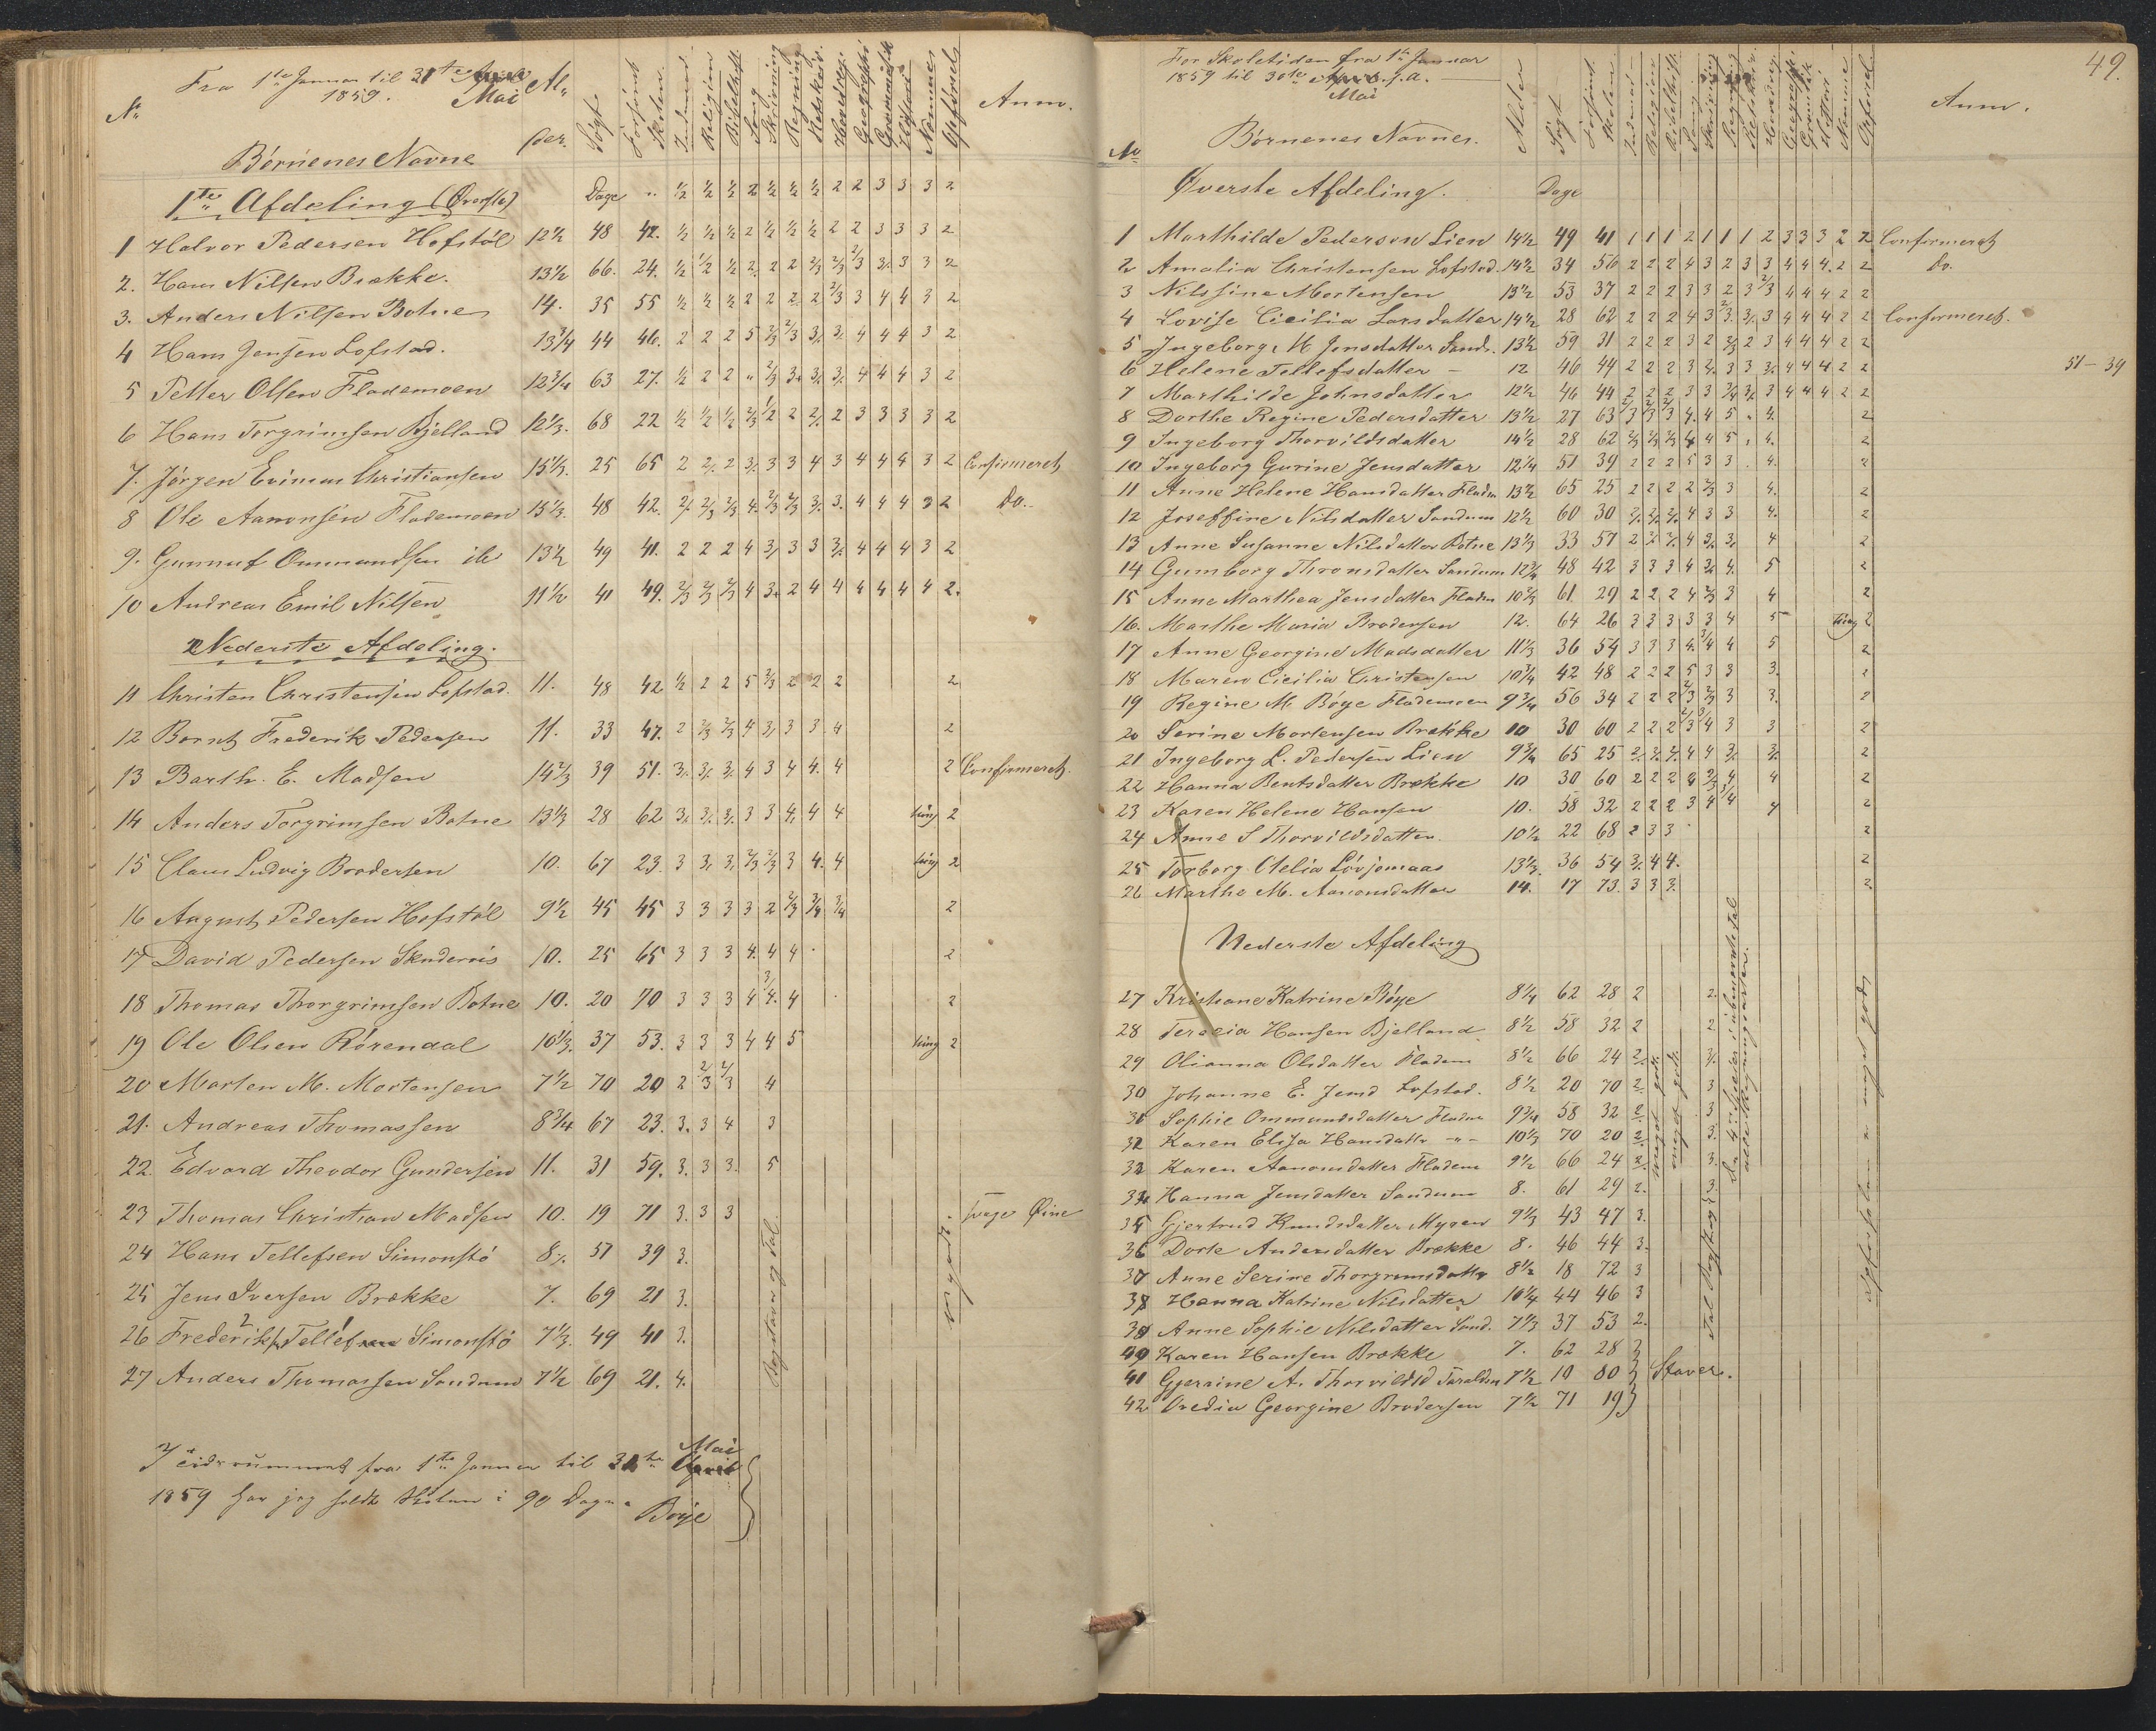 Fra 1ste Januar til 31te Mai Al-
1859.
No Børnenes Navne der. Søgt Forsømt Skolen. Indenad. Religion Bibelhist. Sang Skrivning Regning Retskriv. Hovedreg. Geographi Grammatik Historie Nemme Opførsel Anm.
1te Afdeling (Øverste) Dage " ½ ½ ½ 2 ½ ½ ½ 2 2 3 3 3 2
1 Halvor Pedersen Hofstöl 12½ 48 42. ½ ½ ½ 2 ½ ½ ½ 2 2 3 3 3 2
2. Hans Nilsen Brække. 13½ 66. 24. ½ ½ ½ 2. 2 2 2/3 2/3 2/3 3. 3 3 2
3. Anders Nilsen Botne 14. 35 55 ½ ½ ½ 2 2 2 2 2/3 3 4 4 3 2
4 Hans Jensen Lofstad. 13¾ 44 46. 2 2 2 5 2/3 2/3 3. 3. 4 4 4 3 2
5 Petter Olsen Flademoen 12¾ 63 27. ½ 2 2 " 2/3 3. 3. 3. 4 4 4 3 2
6 Hans Torgrimsen Bjelland 12⅓. 68 22 ½ ½ ½ 2/3 ½ 2 2. 2 3 3 3 3 2
7. Jørgen Evinius Christiansen 15⅓. 25 65 2 2. 2 3. 3 3 4 3 4 4 4 3 2 Confirmeret
8 Ole Aanonsen Flademoen 15⅓. 48 42. 2/3 2/3 4. 2/3 2/3 3. 3. 4 4 4 3 2 Do..
9. Gunnuf Ommundsen ib 13½ 49 41. 2 2 2 4 3. 3 3 3. 4 4 4 3 2
10 Andreas Emil Nilsen 11½ 41 49. 2/3 2/3 2/3 4 3. 2 4 4 4 4 4 4 2.
Nederste Afdeling.
11 Christen Christensen Lofstad. 11. 48 42 ½ 2 2 5 2/3 2 2 2 2
12 Bernt Frederik Pedersen 11. 33 47. 2 2/3 2/3 4 3. 3 3 4 2
13 Barth. E. Madsen 14⅔ 39 51. 3. 3. 3. 4 3 4 4. 4 2 Confirmeret.
14 Anders Torgrimsen Botne 13⅓ 28 62 3. 3. 3. 3 3 4. 4 4 2
15 Claus Ludvig Brodersen 10. 67 23. 3 3. 3. 2/3 2/3 3 4. 4 2
16 August Pedersen Hofstöl 9½ 45 45 3 3 3 3 2 2/3 3/4 3/4 2
17 David Pedersen 10. 25 65 3 3 3 4. 4 4 2
18 Thomas Thorgrimsen Botne 10. 20 70 3 3 3 4 3/4. 4 2
19 Ole Olsen Rörendal 10⅓. 37 53. 3 3 3 4 4 5 2
20 Morten M. Mortensen 7½ 70 20 2 2/3 2/3 4
21. Andreas Thomassen 8¾ 67 23. 3. 3 4 3
22. Edvard Theodor Gundersen 11. 31 59. 3. 3 3. 5
23 Thomas Christian Madsen 10. 19 71 3. 3 3 svage Øine
24 Hans Tellefsen Simonstö 8½. 51 39 3.
25 Jens Iversen Brække 7. 69 21 3.
26 Frederik Tellef Simonstö 7⅓. 49 41 3.
27 Anders Thomassen Sandum 7½ 69 21. 4.
Bogstaver og Tal.
I Tidsrummet fra 1te Januar til 31te Mai
1859 har jeg holdt Skolen i 90 Dage.
Böye
49.
For Skoletiden fra 1te Januar
1859 til 30te Mai d. A.
No Børnenes Navnes. Alder Søgt Forsømt Skolen. Indenad Religion Bibelhist. Sang Skrivning Regning Retskriv. Hovedreg. Geographi Gramatik Historie Nemme Opførsel Anm.
Øverste Afdeling. Dage
1 Marthilde Pedersen Lien 14½ 49 41 1 1 1 2 1 1 1 2 3 3 3 2 2 Confirmeret
2 Amalia Christensen Lofstad. 14½ 34 56 2 2 2 4 3 2 3 3 4 4 4. 2 2 Do.
3 Nilssine Mortensen 13½ 53 37 2 2 2 3 3 2 3 2/3 4 4 4 2 2
4 Lovise Cicilia Larsdatter 14½ 28 62 2 2 2 4 3 2/3. 3. 3 4 4 4 2 2 Confirmeret.
5 Ingeborg M Jensdatter Sand. 13½ 59 31 2 2 2 3 2 2/3 2 3 4 4 4 2 2
6 Helene Tellefsdatter - 12 46 44 2 2 2 3 2. 3 3 3. 4 4 4 2 2 51 - 39
7 Marthilde Johnsdatter 12½ 46 44 2 2 2 3 3 3/4 3. 3 4 4 4 2 2
8 Dorthe Regine Pedersdatter 13½ 27 63 2/3 2/3 2/3 4. 4 5 . 4. 2
9 Ingeborg Thorvildsdatter 14½ 28 62 2/3 2/3 2/3 4 4 5 . 4. 2
10 Ingeborg Gurine Jensdatter 12¼ 51 39 2 2 2 5 3 3 . 4. 2
11 Anne Helene Hansdatter Fladm 13½ 65 25 2 2 2 2 2/3 3 4. 2
12 Joseffine Nilsdatter Sandum 12½ 60 30 2. 2. 2. 4 3 3 4. 2
13 Anne Susanne Nilsdatter Botne 13⅓ 33 57 2 2. 2. 4 3. 3. 4 2
14 Gumborg Thronsdatter Sandum 12¾ 48 42 3 3 3 4 3. 4. 5 2
15 Anne Marthea Jensdatter Fladm 10⅔ 61 29 2 2 2 4 2/3 3 4 2
16. Marthe Maria Brodersen 12. 64 26 3 3 3 3 3 4 5 2
17 Anne Georgine Madsdatter 11⅓ 36 54 3 3 3 4. 3/4 4 5 2
18 Maren Cicilia Christensen 10¾ 42 48 2 2 2 5 3 3 3. 2
19 Regine M. Böye Flademoen 9¾ 56 34 2 2 2 2/3 2/3 3 3. 2
20 Serine Mortensen Brække 10 30 60 2 2 2 2/3 3/4 3 3 2
21 Ingeborg L. Pedersen Lien 9¾ 65 25 2. 2. 2. 4 4 3. 3. 2
22 Hanna Bentsdatter Brække 10 30 60 2 2 2 4 2/3 4 4 2
23 Karen Helene Hansen 10. 58 32 2 2 2 3 4 3/4 4 2
24 Anne S Thorvildsdatter 10½ 22 68 2 3 3 2
25 Torborg Otelia Lövjomaas 13⅓. 36 54 3. 4 4. 2
26 Marthe M. Aanonsdatter 14. 17 73. 3 3 3. 2
Nederste Afdeling
27 Kristiane Katrine Böye 8¼ 62 28 2 2.
28 Teresia Hansen Bjelland 8½ 58 32 2 2
29 Olianna Olsdatter Fladem 8½ 66 24 2. 3.
30 Johanne E. Jensd Lofstad. 8½ 20 70 2. 3
31 Sophie Ommundsdatter Fladm 9¾ 58 32 2. 3
32 Karen Elisa Hansdattr -"- 10⅓ 70 20 2. 3.
33 Karen Aanonsdatter Fladem 9½ 66 24 2. 3.
34 Hanna Jensdatter Sandum 8. 61 29 2. 3.
35 Gjertrud Knudsdatter Myren 9⅓ 43 47 3.
36 Dorte Andersdatter Brække 8. 46 44 3.
37 Anne Serine Thorgrimsdatter 8½ 18 72 3
38 Hanna Katrine Nilsdatter 10¼ 44 46 3
39 Anne Sophie Nilsdatter Sand. 7⅓ 37 53 2.
40 Karen Hansen Brække 7. 62 28 3
41 Gjeraine A. Thorvildsd Taraldsen 7½ 10 80 } Staver.
42 Ovedia Georgine Brodersen 7½ 71 19 }
meget godt.
meget godt.
Tal Bogstaver
Opførselen er meget god